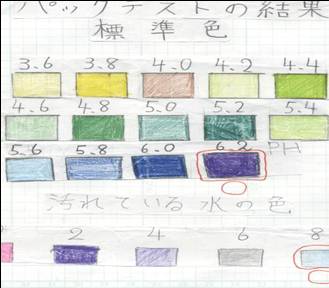 パックテストの結果
標準色
3.6 3.8 4.0 4.2 4.4
4.6 4.8 5.0 5.2 5.4
5.6 5.8 6.0 6.2 PH
汚れている水の色
2 4 6 8